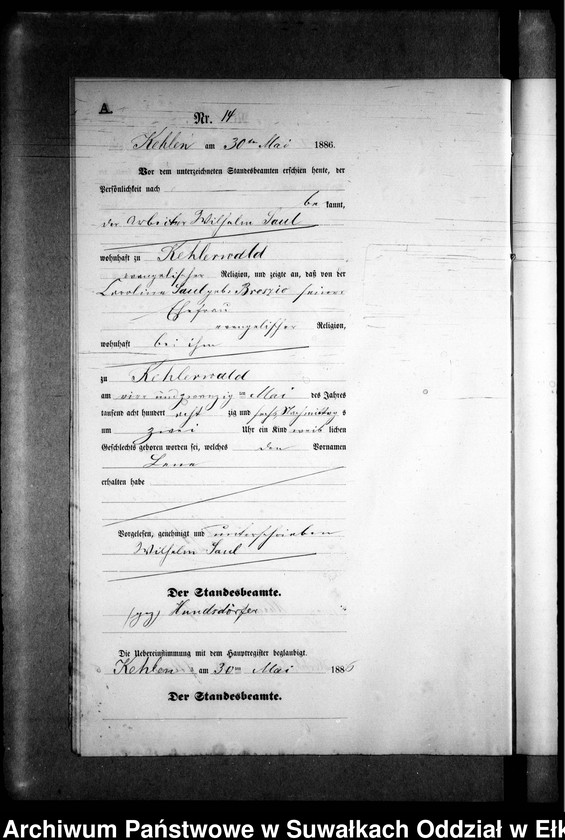 A.
Nr. 14
Kehlen am 30ten Mai 1886.
Vor dem unterzeichneten Standesbeamten erschien heute, der
Persönlichkeit nach
be kannt,
der Arbeiter Wilhelm Saul
wohnhaft zu Kehlerwald
evangelischer Religion, und zeigte an, daß von der
Caroline Saul geb. Broszio seiner
Ehefrau
evangelischer Religion,
wohnhaft bei ihm
zu Kehlerwald
am vier und zwanzig ten Mai des Jahres
tausend acht hundert acht zig und sechs Nachmittag s
um zwei Uhr ein Kind weib lichen
Geschlechts geboren worden sei, welches den Vornamen
Lena
erhalten habe
Vorgelesen, genehmigt und unterschrieben
Wilhelm Saul
Der Standesbeamte.
(gez) Hundsdörfer
Die Uebereinstimmung mit dem Hauptregister beglaubigt.
Kehlen am 30ten Mai 1886
Der Standesbeamte.
Archiwum Państwowe w Suwałkach Oddział w Ełk